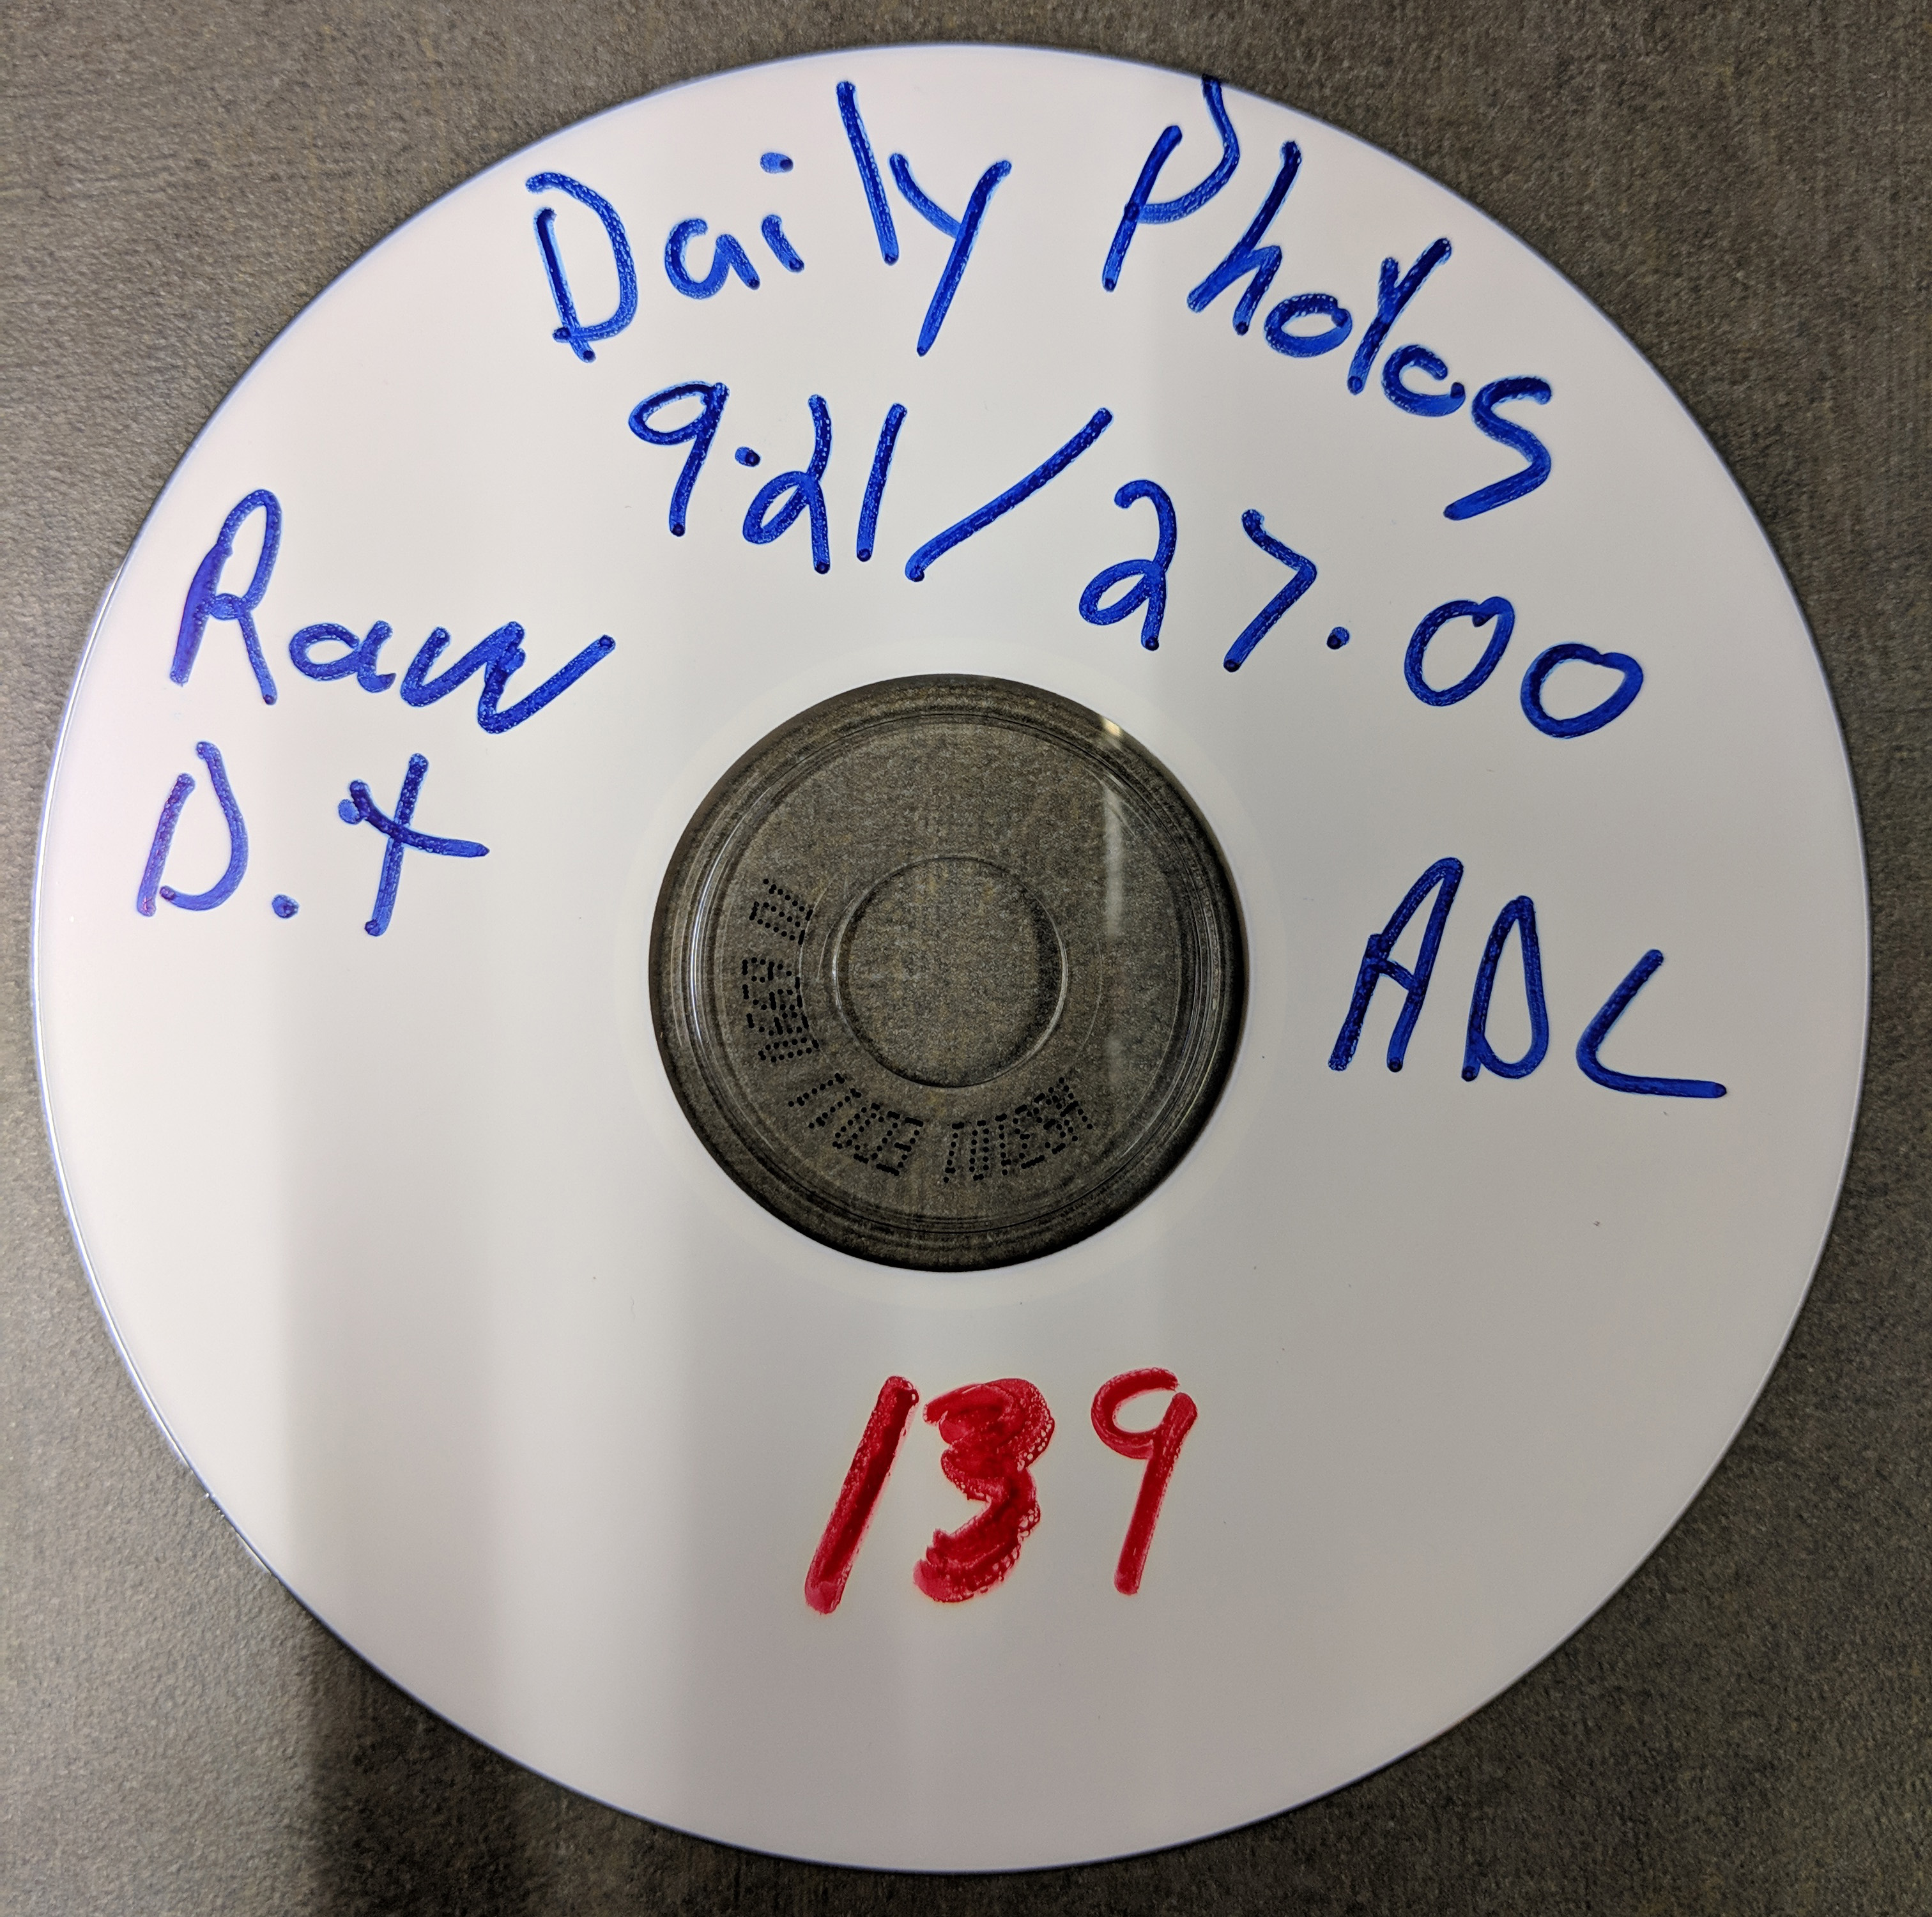 Daily Photos
9.21/27.00
Raw
D.t
ADL
139